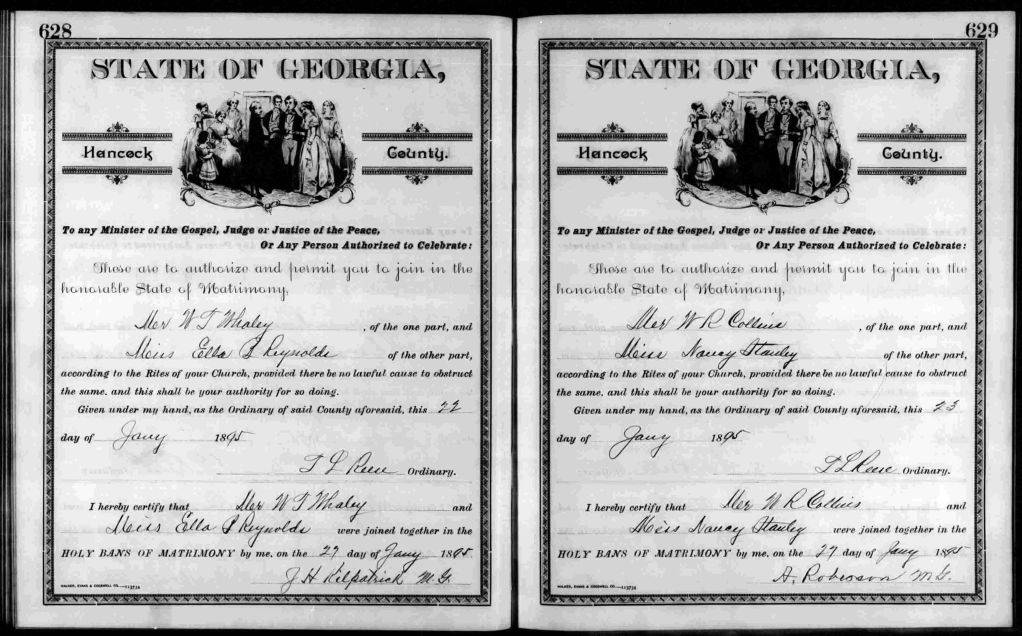 628
STATE OF GEORGIA,
Hancock County.
To any Minister of the Gospel, Judge or Justice of the Peace,
Or Any Person Authorized to Celebrate:
These are to authorize and permit you to join in the
honorable State of Matrimony,
Mr W T Whaley , of the one part, and
Miss Ella Reynolds of the other part,
according to the Rites of your Church, provided there be no lawful cause to obstruct
the same, and this shall be your authority for so doing.
Given under my hand, as the Ordinary of said County aforesaid, this 22
day of Jany 1895
T L Reese Ordinary.
I hereby certify that Mr W T Whaley and
Miss Ella Reynolds were joined together in the
HOLY BANS OF MATRIMONY by me, on the 27 day of Jany 1895
J H Kilpatrick M.G.
629
STATE OF GEORGIA,
Hancock County.
To any Minister of the Gospel, Judge or Justice of the Peace,
Or Any Person Authorized to Celebrate:
These are to authorize and permit you to join in the
honorable State of Matrimony,
Mr W R Collins , of the one part, and
Miss Nancy Stanley of the other part,
according to the Rites of your Church, provided there be no lawful cause to obstruct
the same, and this shall be your authority for so doing.
Given under my hand, as the Ordinary of said County aforesaid, this 23
day of Jany 1895
T L Reese Ordinary.
I hereby certify that Mr W R Collins and
Miss Nancy Stanley were joined together in the
HOLY BANS OF MATRIMONY by me, on the 27 day of Jany 1895
A. Roberson M.G.